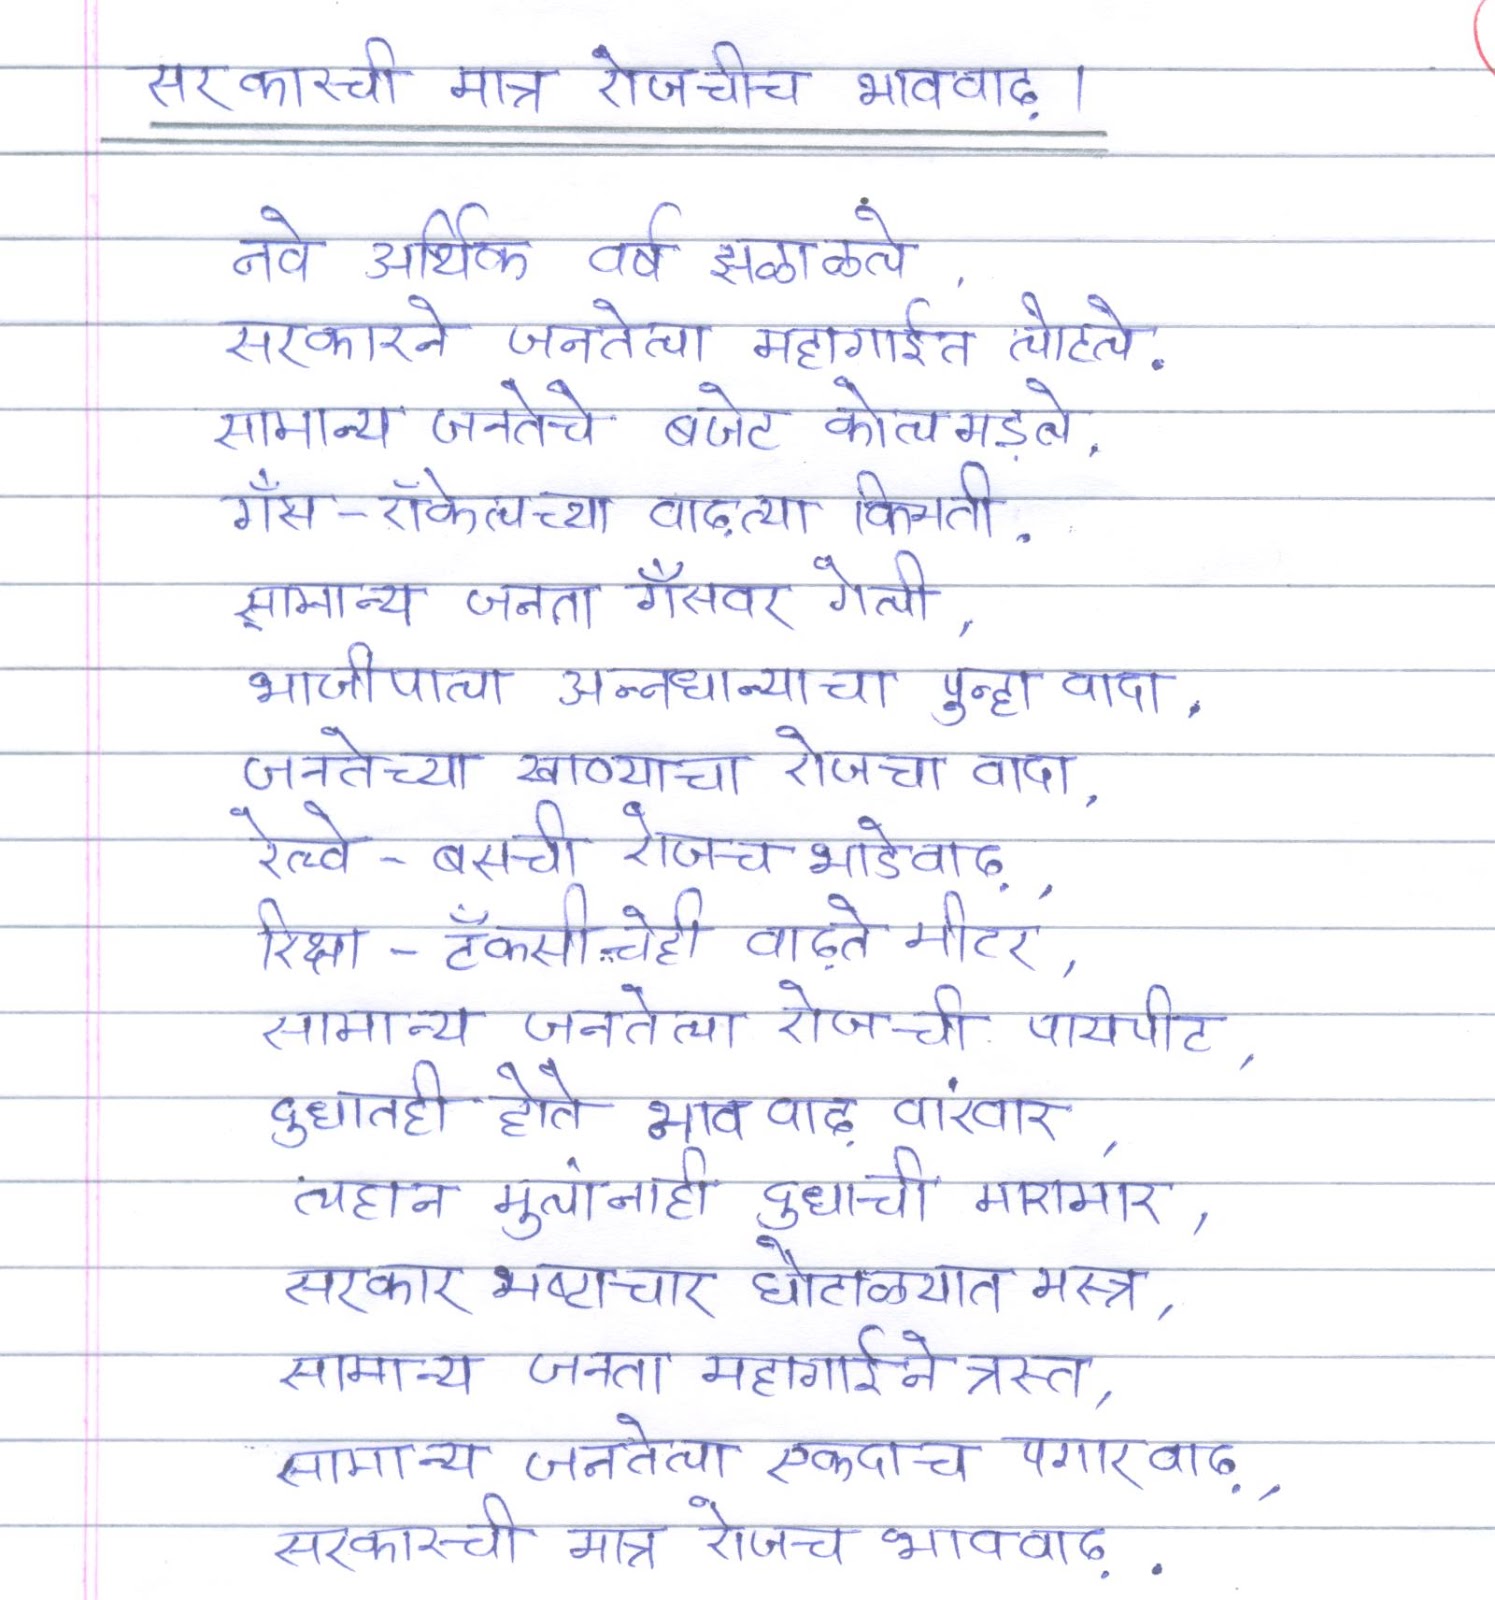 सरकारची मात्र रोजचीच भाववाढ़ ।
नवे आर्थिक वर्ष झळाळले,
सरकारने जनतेला महागाईत लोटले.
सामान्य जनतेचे बजेट कोलमड़ले,
गॅंस - रॉकेलच्या वाढ़त्या किमती.
सामान्य जनता गॅंसवर गेली,
भाजीपाला अन्नधान्याचा पुन्हा वादा,
जनतेच्या खाण्याचा रोजचा वादा,
रेल्वे - बसची रोजच भाडेवाढ़,
रिक्षा - टॅंकसीचेही वाढ़ते मीटर,
सामान्य जनतेला रोजची पायपीट,
दुधातही होते भाववाढ़ वांरवार,
लहान मुलांनाही दुधाची मारामार,
सरकार भष्टाचार घोटाळयात मस्त्र,
सामान्य जनता महागाईने त्रस्त,
सामान्य जनतेला एकदाच पगारवाढ़,
सरकारची मात्र रोजच भाववाढ़.